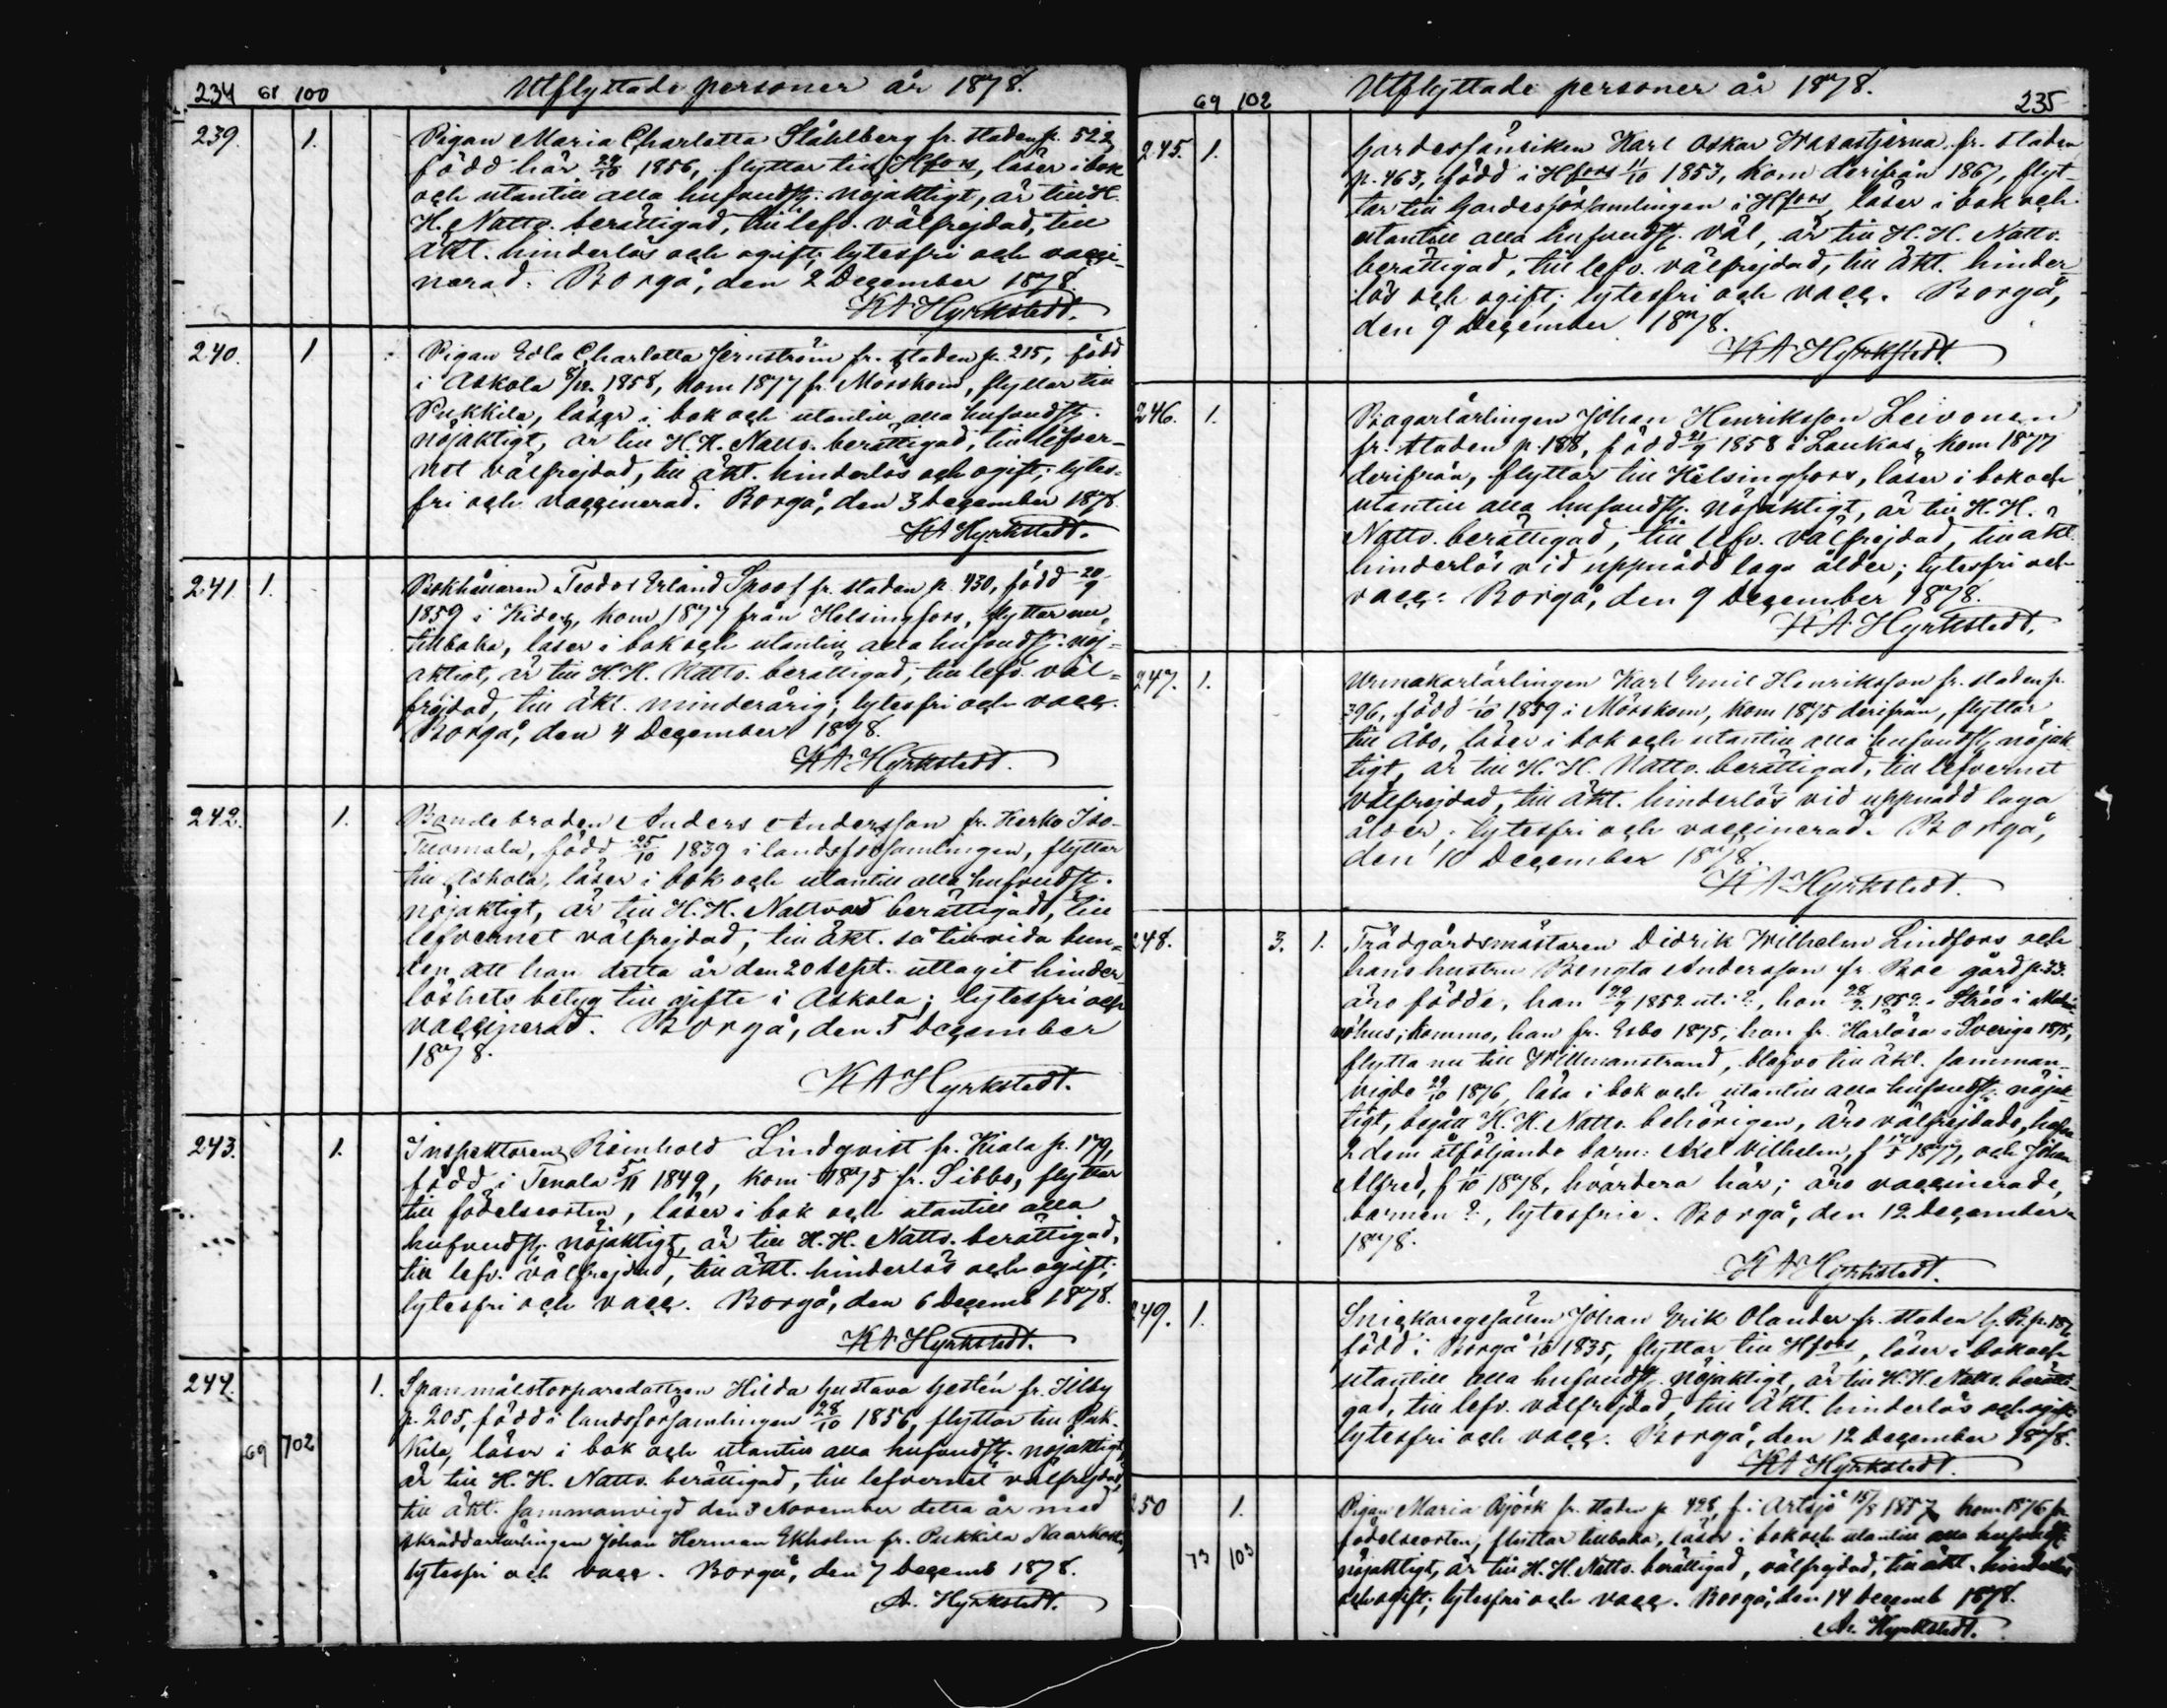 234 68 100 Utflyttade personer år 1878.
239. 1. Pigan Maria Charlotta Ståhlberg fr. staden p. 522,
född här 29/10 1856, flyttar till Hfors, läser i bok
och utantill alla hufvudst. nöjaktigt, är till H.
H. Nattv. berättigad, till lefv. välfrejdad, till
äkt. hinderlös och ogift; lytesfri och vacci-
nerad. Borgå, den 2 December 1878.
KA Hyrkstedt.
240. 1 Pigan Edla Charlotta Jernström fr. staden p. 215, född
i Askola 8/12 1858, kom 1877 fr. Mörskom, flyttar till
Pukkila, läser i bok och utantill alla hufvudst.
nöjaktigt, är till H. H. Nattv. berättigad, till lefver-
net välfrejdad, till äkt. hinderlös och ogift; lytes-
fri och vaccinerad. Borgå, den 3 December 1878.
KA Hyrkstedt.
241 1. Bokhållaren Teodor Erland Spoof fr. staden p. 430, född 20/9
1859 i Kides, kom 1877 från Helsingfors, flyttar nu
tillbaka, läser i bok och utantill alla hufvudst. nöj-
aktigt, är till H. H. Nattv. berättigad, till lefv. väl-
frejdad, till äkt. minderårig; lytesfri och vacc.
Borgå, den 4 December 1878.
KA Hyrkstedt.
242. 1. Bondebroden Anders Andersson fr. Kerko Iso-
Tuomala, född 25/10 1839 i landsförsamlingen, flyttar
till Askola, läser i bok och utantill alla hufvudst.
nöjaktigt, är till H. H. Nattvard berättigad, till
lefvernet välfrejdad, till äkt. så tillvida bun-
den att han detta år den 20 Sept. uttagit hinder-
löshets betyg till gifte i Askola; lytesfri och
vaccinerad. Borgå, den 5 December
1878.
KA Hyrkstedt.
243. 1. Inspektoren Reinhold Lindqvist fr. Kiala p. 179,
född i Tenala 5/11 1849, kom 1875 fr. Sibbo, flyttar
till födelseorten, läser i bok och utantill alla
hufvudst. nöjaktigt, är till H. H. Nattv. berättigad,
till lefv. välfrejdad, till äkt. hinderlös och ogift;
lytesfri och vacc. Borgå, den 6 Decemb 1878.
KA Hyrkstedt.
244. 1. Spanmålstorparedottren Hilda Gustava Gestén fr. Illby
p. 205, född i landsförsamlingen 28/10 1856, flyttar till Puk-
69 102 kila, läser i bok och utantill alla hufvudst. nöjaktigt,
är till H. H. Nattv. berättigad, till lefvernet välfrejdad,
till äkt. sammanvigd den 3 November detta år med
skräddarlärlingen Johan Herman Ekholm fr. Pukkila Naarkoski,
lytesfri och vacc. Borgå, den 7 Decemb 1878.
A. Hyrkstedt.
69 102 Utflyttade personer år 1878. 235
245. 1. Gardesfänriken Karl Oskar Wasastjerna fr. staden
p. 463, född i Hfors 11/10 1853, kom derifrån 1867, flyt-
tar till Gardesförsamlingen i Hfors, läser i bok och
utantill alla hufvudst. väl, är till H. H. Nattv.
berättigad, till lefv. välfrejdad, till äkt. hinder-
lös och ogift; lytesfri och vacc. Borgå,
den 9 December 1878.
KA Hyrkstedt.
246. 1. Bagarlärlingen Johan Henriksson Leivonen
fr. staden p. 188, född 21/9 1858 i Laukas, kom 1877
derifrån, flyttar till Helsingfors, läser i bok och
utantill alla hufvudst. nöjaktigt, är till H. H.
Nattv. berättigad, till lefv. välfrejdad, till äkt.
hinderlös vid uppnådd laga ålder; lytesfri och
vacc. Borgå, den 9 December 1878.
KA Hyrkstedt.
247. 1. Urmakarlärlingen Karl Emil Henriksson fr. staden p.
396, född 1/10 1859 i Mörskom, kom 1875 derifrån, flyttar
till Åbo, läser i bok och utantill alla hufvudst. nöjak-
tigt, är till H. H. Nattv. berättigad, till lefvernet
välfrejdad, till äkt. hinderlös vid uppnådd laga
ålder; lytesfri och vaccinerad. Borgå,
den 10 December 1878.
KA Hyrkstedt.
248. 3. 1. Trädgårdsmästaren Didrik Wilhelm Lindfors och
hans hustru Bengta Andersson fr. Boe gård p. 33.
äro födde, han 29/9 1852 uti ?, hon 28/2 1852 i i
hus; kommo, han fr. Esbo 1875, hon fr. Harlösa i Sverige 1875,
flytta nu till Willmanstrand, blefvo till äkt. samman-
vigde 29/10 1876, läsa i bok och utantill alla hufvudst. nöjak-
tigt, begått H. H. Nattv. behörigen, äro välfrejdade, hafva
2 dem åtföljande barn: Axel Vilhelm, f 1877, och Johan
Alfred, f /10 1878, hvardera här; äro vaccinerade,
barnen ?, lytesfrie. Borgå, den 12 December
1878.
KA Hyrkstedt.
249. 1. Snickaregesällen Johan Erik Olander fr. staden
född i Borgå 1835, flyttar till Hfors, läser i bok och
utantill alla hufvudst. nöjaktigt, är till H. H. Nattv. berätti-
gad, till lefv. välfrejdad, till äkt. hinderlös och ogift,
lytesfri och vacc. Borgå, den 12 December 1878.
KA Hyrkstedt.
250 1. Pigan Maria Björk fr. staden p. 428, f. i Artsjö 15/8 1857 kom 1876 fr.
födelseorten, flyttar tillbaka, läser i bok och utantill alla hufvudst.
73 103 nöjaktigt, är till H. H. Nattv. berättigad, välfrejdad, till äkt. hinderlös
och ogift; lytesfri och vacc. Borgå, den 14 Decemb 1878.
A. Hyrkstedt.